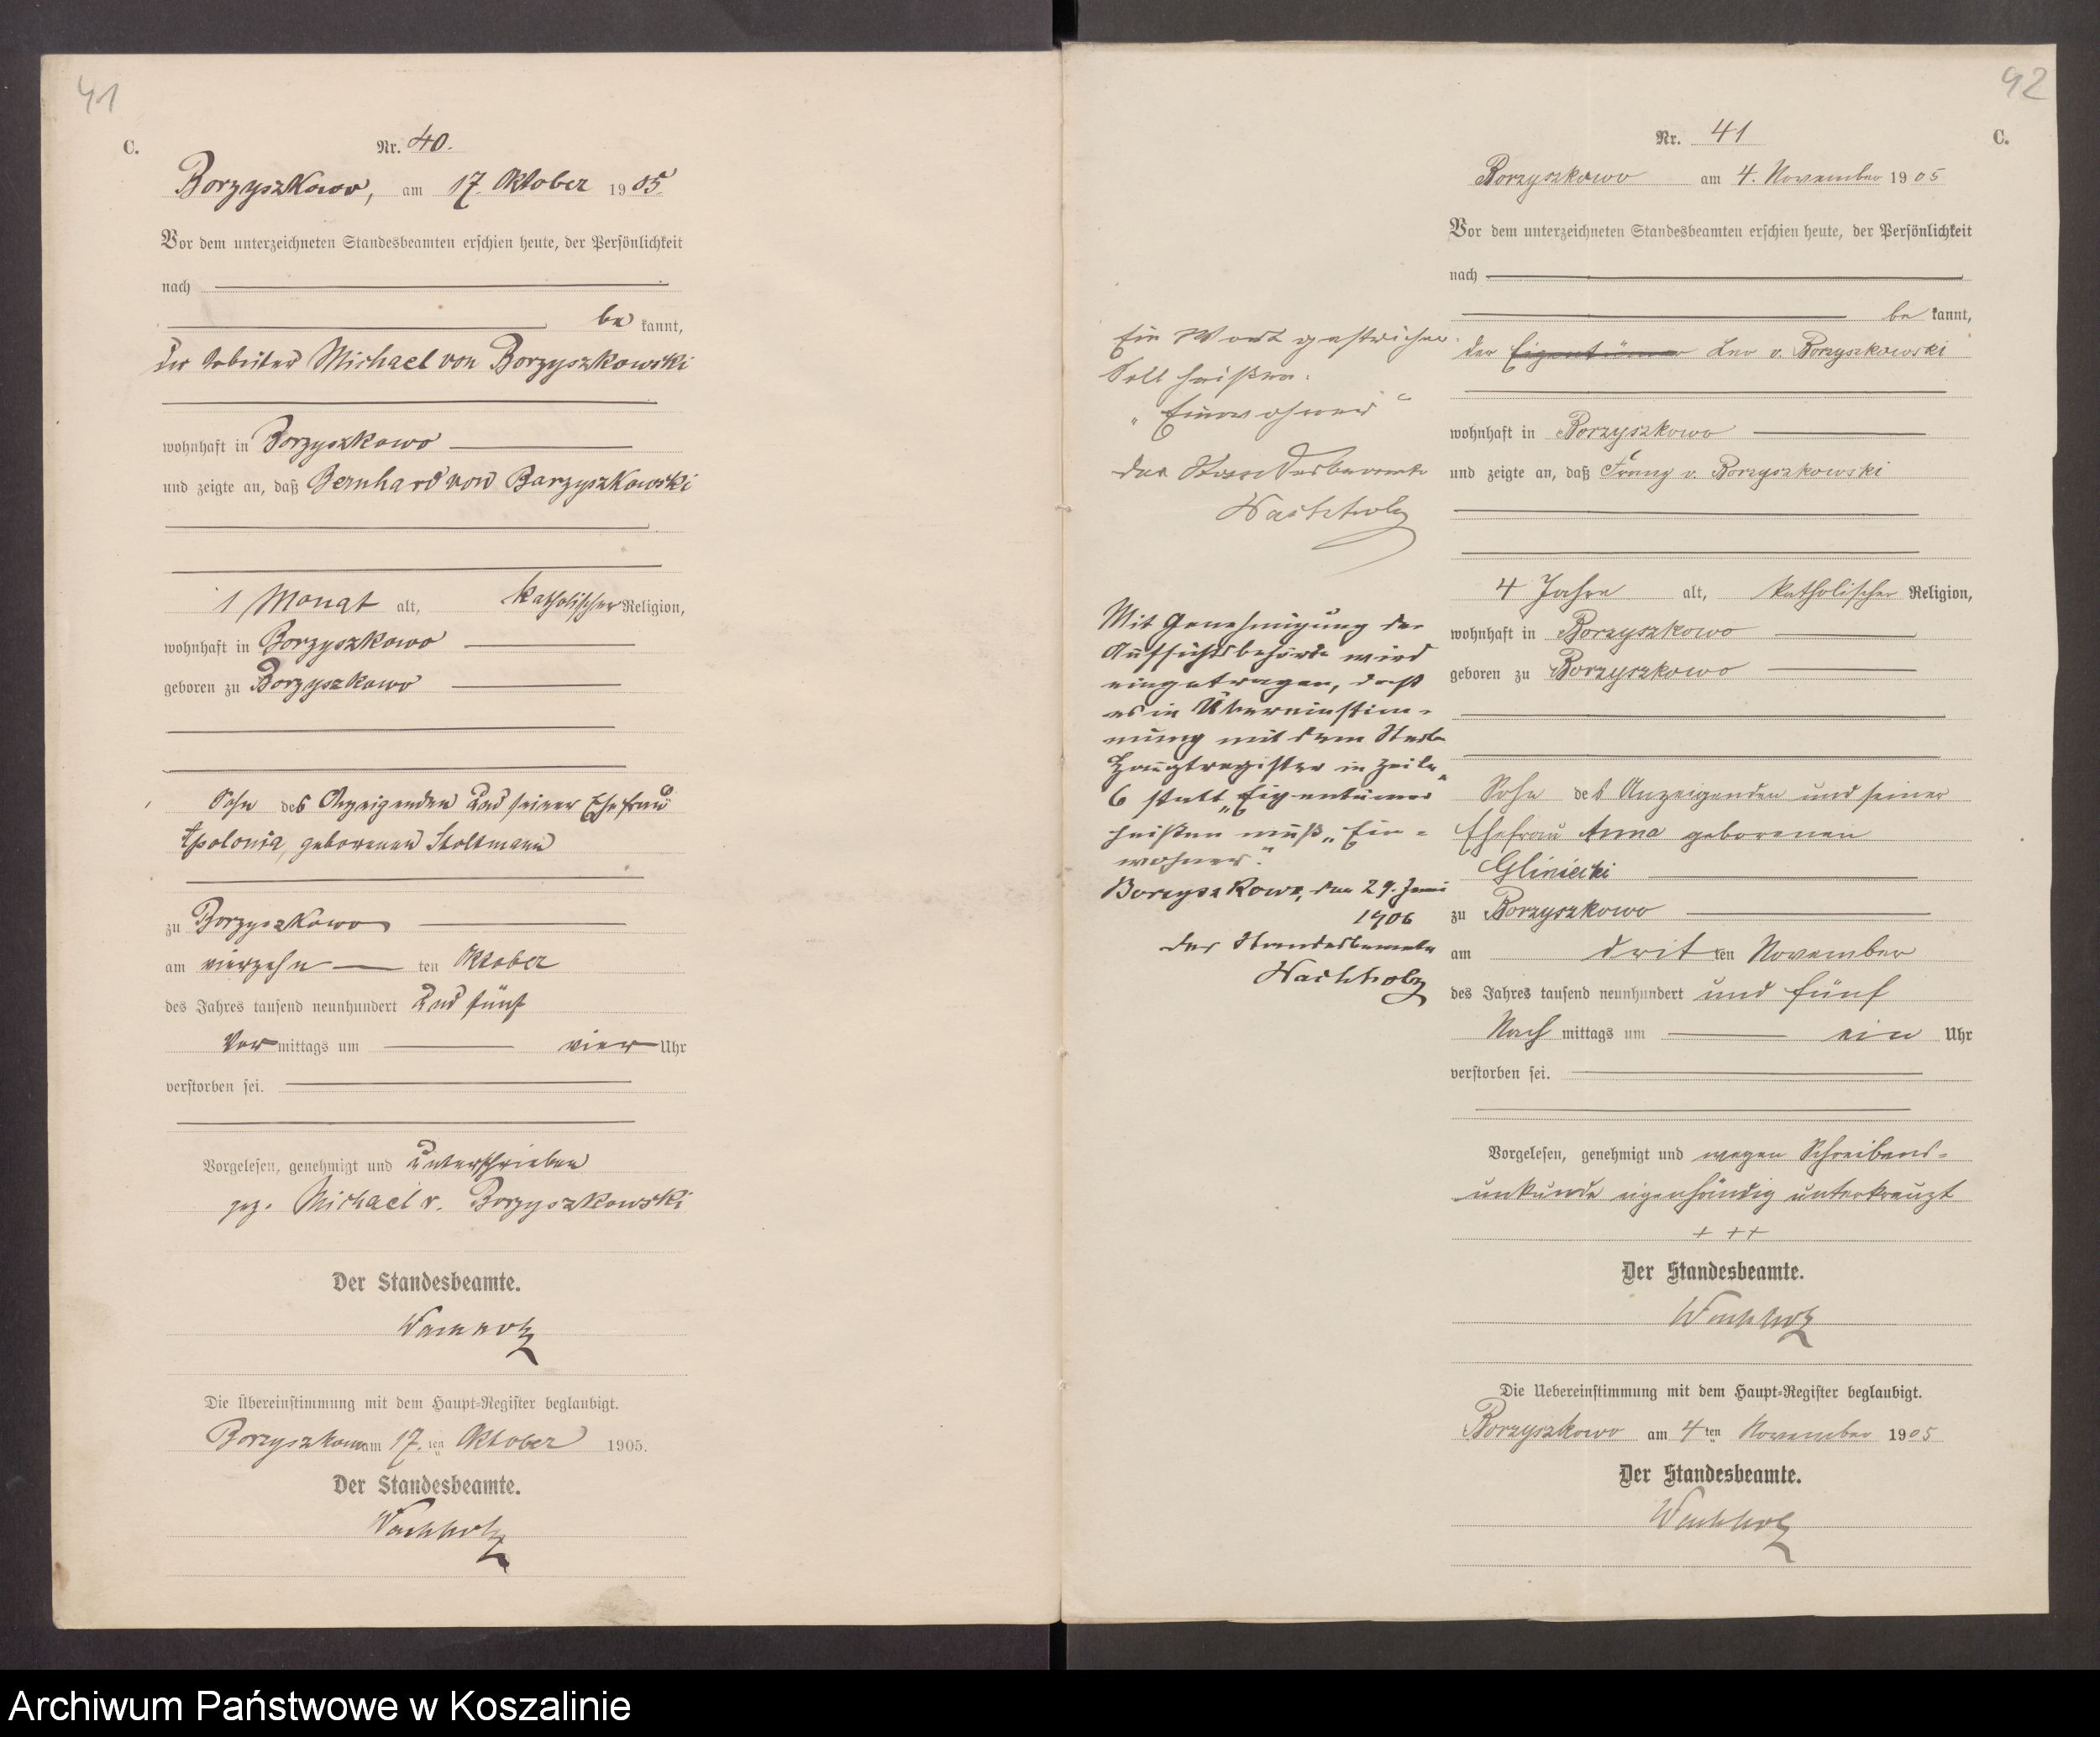 41
C.
Nr. 40.
Borzyszkowo, am 17. Oktober 1905.
Vor dem unterzeichneten Standesbeamten erschien heute, der Persönlichkeit
nach
be kannt,
der Arbeiter Michael von Borzyszkowski
wohnhaft in Borzyszkowo
und zeigte an, daß Bernhard von Borzyszkowski
1 Monat alt, katholischer Religion,
wohnhaft in Borzyszkowo
geboren zu Borzyszkowo
Sohn des Anzeigenden und seiner Ehefrau
Apolonia, geborenen Stoltmann
zu Borzyszkowo
am vierzehn ten Oktober
des Jahres tausend neunhundert und fünf
Vor mittags um vier Uhr
verstorben sei.
Vorgelesen, genehmigt und unterschrieben
gez. Michael v. Borzyszkowski
Der Standesbeamte.
Wachholz
Die Übereinstimmung mit dem Haupt-Register beglaubigt.
Borzyszkowo am 17. ten Oktober 1905.
Der Standesbeamte.
Wachholz
42
C.
Nr. 41
Borzyszkowo am 4. November 1905
Vor dem unterzeichneten Standesbeamten erschien heute, der Persönlichkeit
nach
be kannt,
der Eigentümer Leo v. Borzyszkowski
wohnhaft in Borzyszkowo
und zeigte an, daß Franz v. Borzyszkowski
4 Jahre alt, katholischer Religion,
wohnhaft in Borzyszkowo
geboren zu Borzyszkowo
Sohn des Anzeigenden und seiner
Ehefrau Anna geborenen
Gliniecki
zu Borzyszkowo
am drit ten November
des Jahres tausend neunhundert und fünf
Nach mittags um ein Uhr
verstorben sei.
Vorgelesen, genehmigt und wegen Schreibens-
unkunde eigenhändig unterkreuzt
+ ++
Der Standesbeamte.
Wachholz
Die Uebereinstimmung mit dem Haupt-Register beglaubigt.
Borzyszkowo am 4 ten November 1905
Der Standesbeamte.
Wachholz
Ein Wort gestrichen.
Soll heißen:
„Einwohner“
Der Standesbeamte
Wachholz
Mit Genehmigung der
Aufsichtsbehörde wird
eingetragen, daß
es in Übereinstim-
mung mit dem
Hauptregister in Zeile
6 statt „Eigentümer“
heißen muß „Ein-
wohner“.
Borzyszkowo, den 29. Juni
1906
Der Standesbeamte
Wachholz
Archiwum Państwowe w Koszalinie